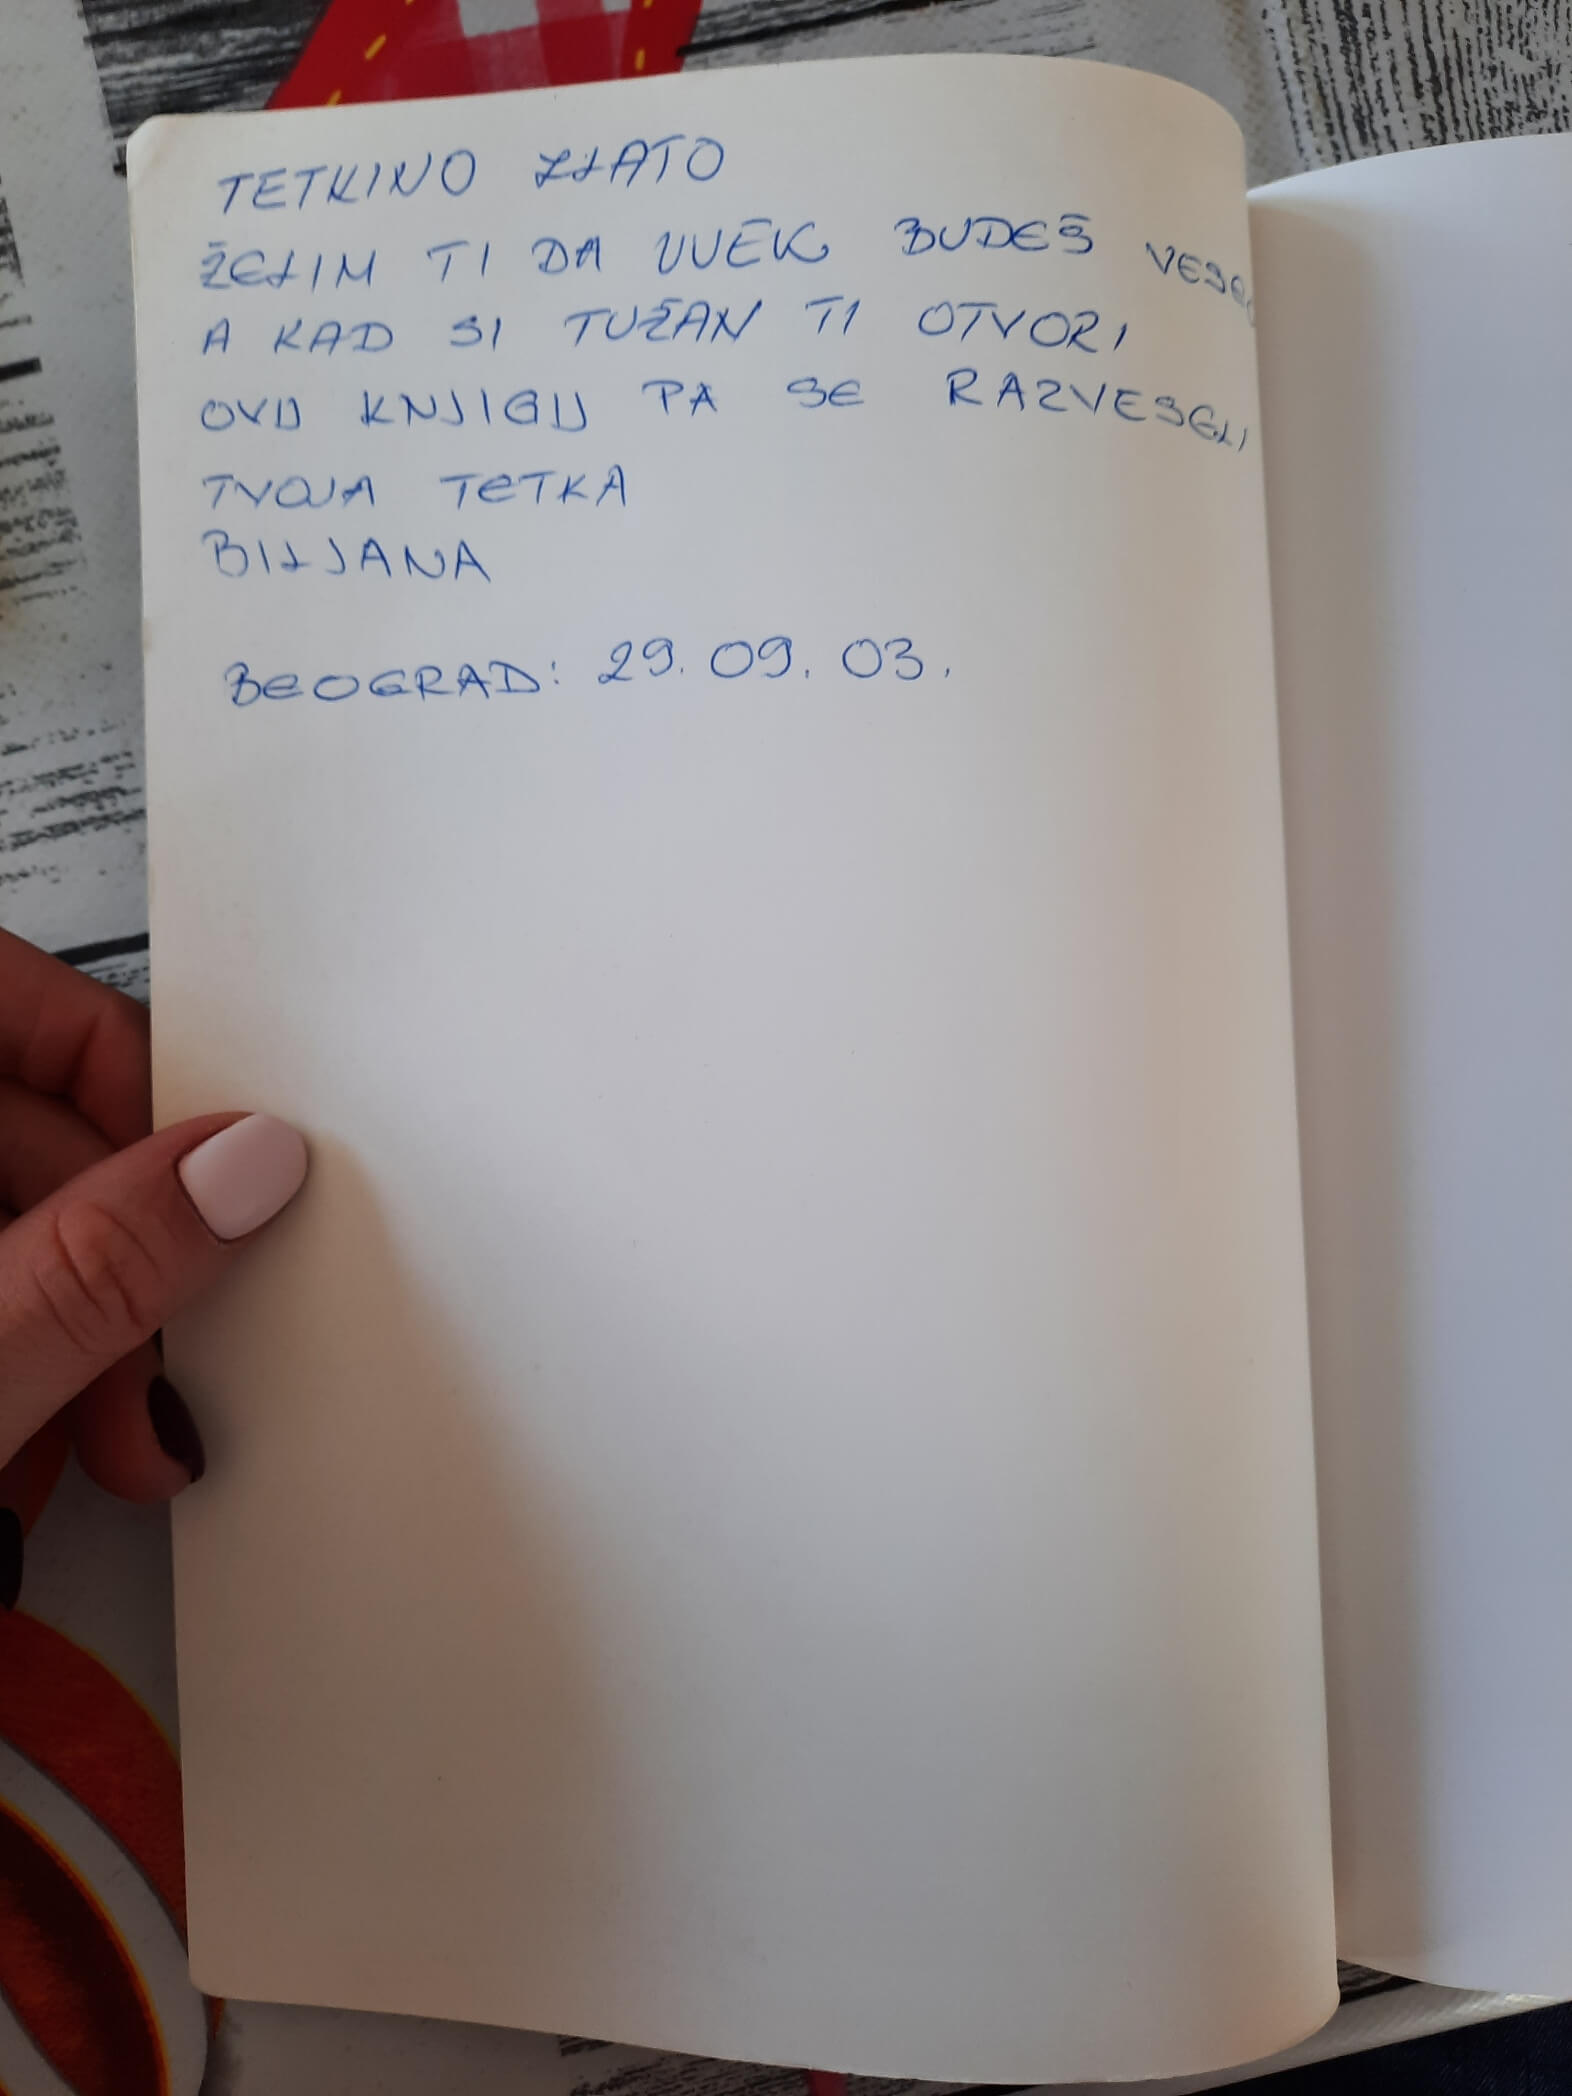 TETKINO ZLATO
ŽELIM TI DA UVEK BUDEŠ VESEO
A KAD SI TUŽAN TI OTVORI
OVU KNJIGU PA SE RAZVESELI
TVOJA TETKA
BILJANA
BEOGRAD: 29. 09. 03.